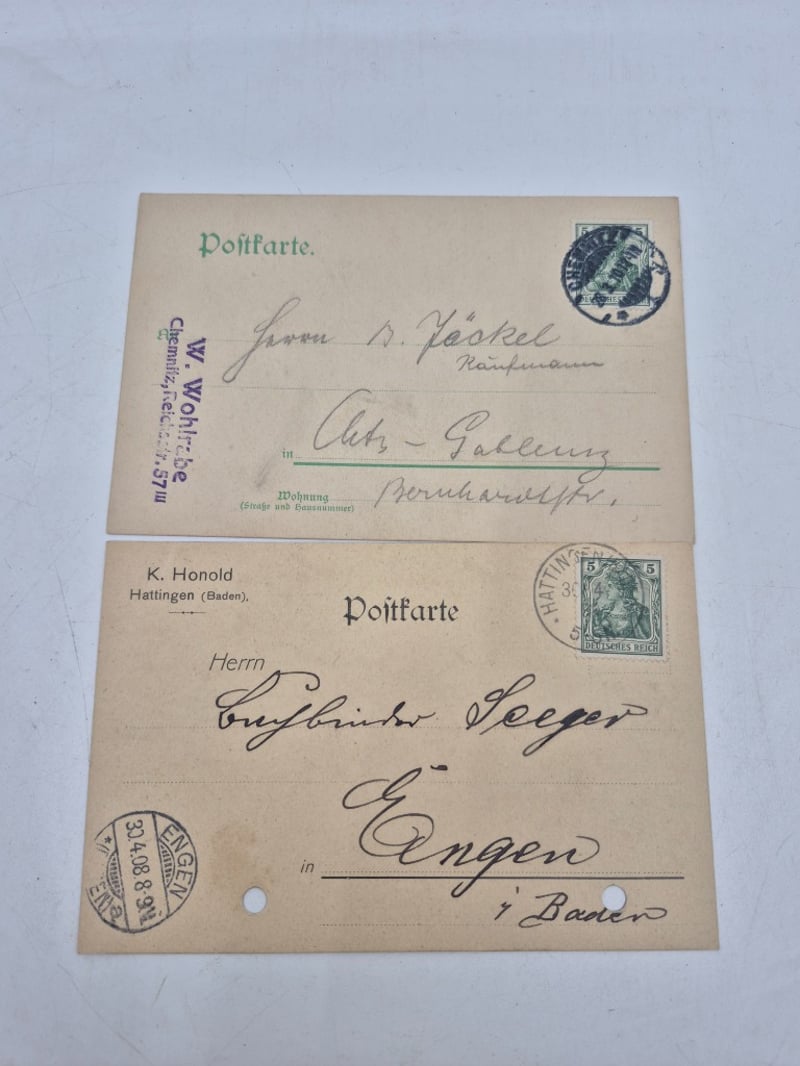 Postkarte.
5 5
DEUTSCHES REICH
CHEMNITZ
W. Wohlrabe
Chemnitz, Reichsstr. 57 III
Herrn B. Jäckel
Kaufmann
in Gablenz
Wohnung
(Straße und Hausnummer)
Bernhardtstr.
K. Honold
Hattingen (Baden).
Postkarte
HATTINGEN
5 5
DEUTSCHES REICH
Herrn
Buchbinder Seeger
in Engen
i Baden
ENGEN
30.4.08.8-9N.